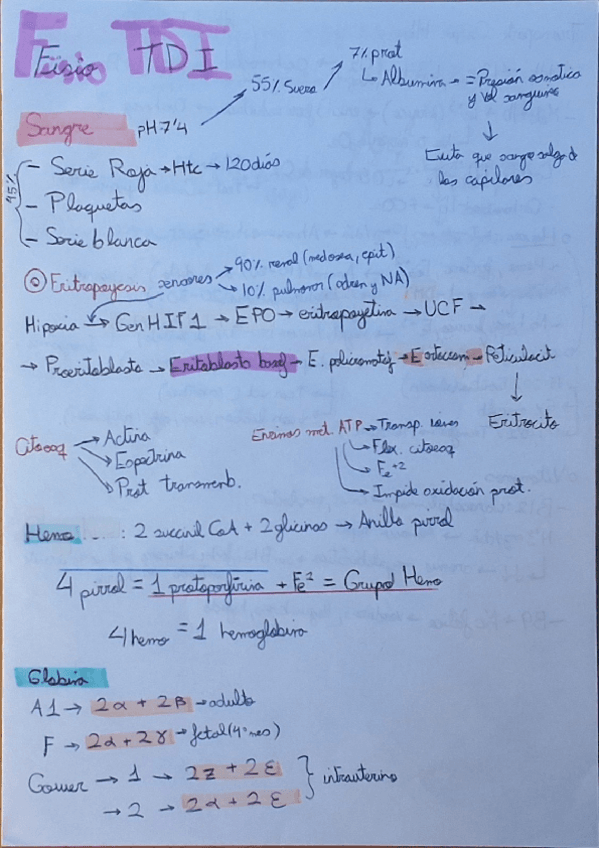 Fisio TDI
Sangre pH 7'4 → 55% Suero → 7% prot
↳ Albumina → = Presión osmótica
y Vol sanguíneo
↓
Evita que sangre salga de
los capilares
45%
- Serie Roja → Htc → 120 días
- Plaquetas
- Serie blanca
Eritropoyesis sensores → 90% renal
→ 10% pulmonar (adren y NA)
Hipoxia → Gen HIF1 → EPO → eritropoyetina → UCF →
→ Proeritoblasto → Eritoblasto basof → E. policromatof → E ortocrom → Reticulocit
↓
Eritrocito
Citoesq → Actina
→ Espectrina
→ Prot transmemb.
Enzimas met. ATP → Transp. iones
→ Flex. citoesq
→ Fe+2
→ Impide oxidación prot.
Hemo ... : 2 succinil CoA + 2 glicinas → Anillo pirrol
4 pirrol = 1 protoporfirina + Fe²⁺ = Grupo Hemo
4 hemo = 1 hemoglobina
Globina
A1 → 2α + 2β → adulto
F → 2α + 2γ → fetal (4º mes)
Gower → 1 → 2z + 2ε } intrauterino
→ 2 → 2α + 2ε